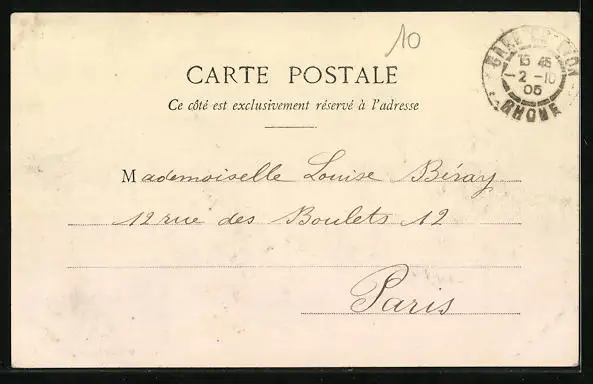 10
CARTE POSTALE
Ce côté est exclusivement réservé à l'adresse
GARE DE LYON
15 45
2 -10
05
RHONE
Mademoiselle Louise Béray
12 rue des Boulets 12
Paris